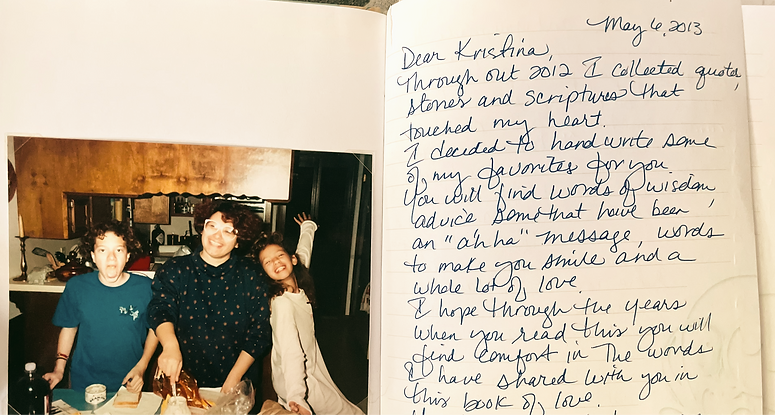 May 6, 2013
Dear Kristina,
Through out 2012 I collected quotes,
stories and scriptures that
touched my heart.
I decided to hand write some
of my favorites for you.
You will find words of wisdom,
advice some that have been
an "ah ha" message, words
to make you smile and a
whole lot of love.
I hope through the years
when you read this you will
find comfort in The words
I have shared with you in
this book of love.